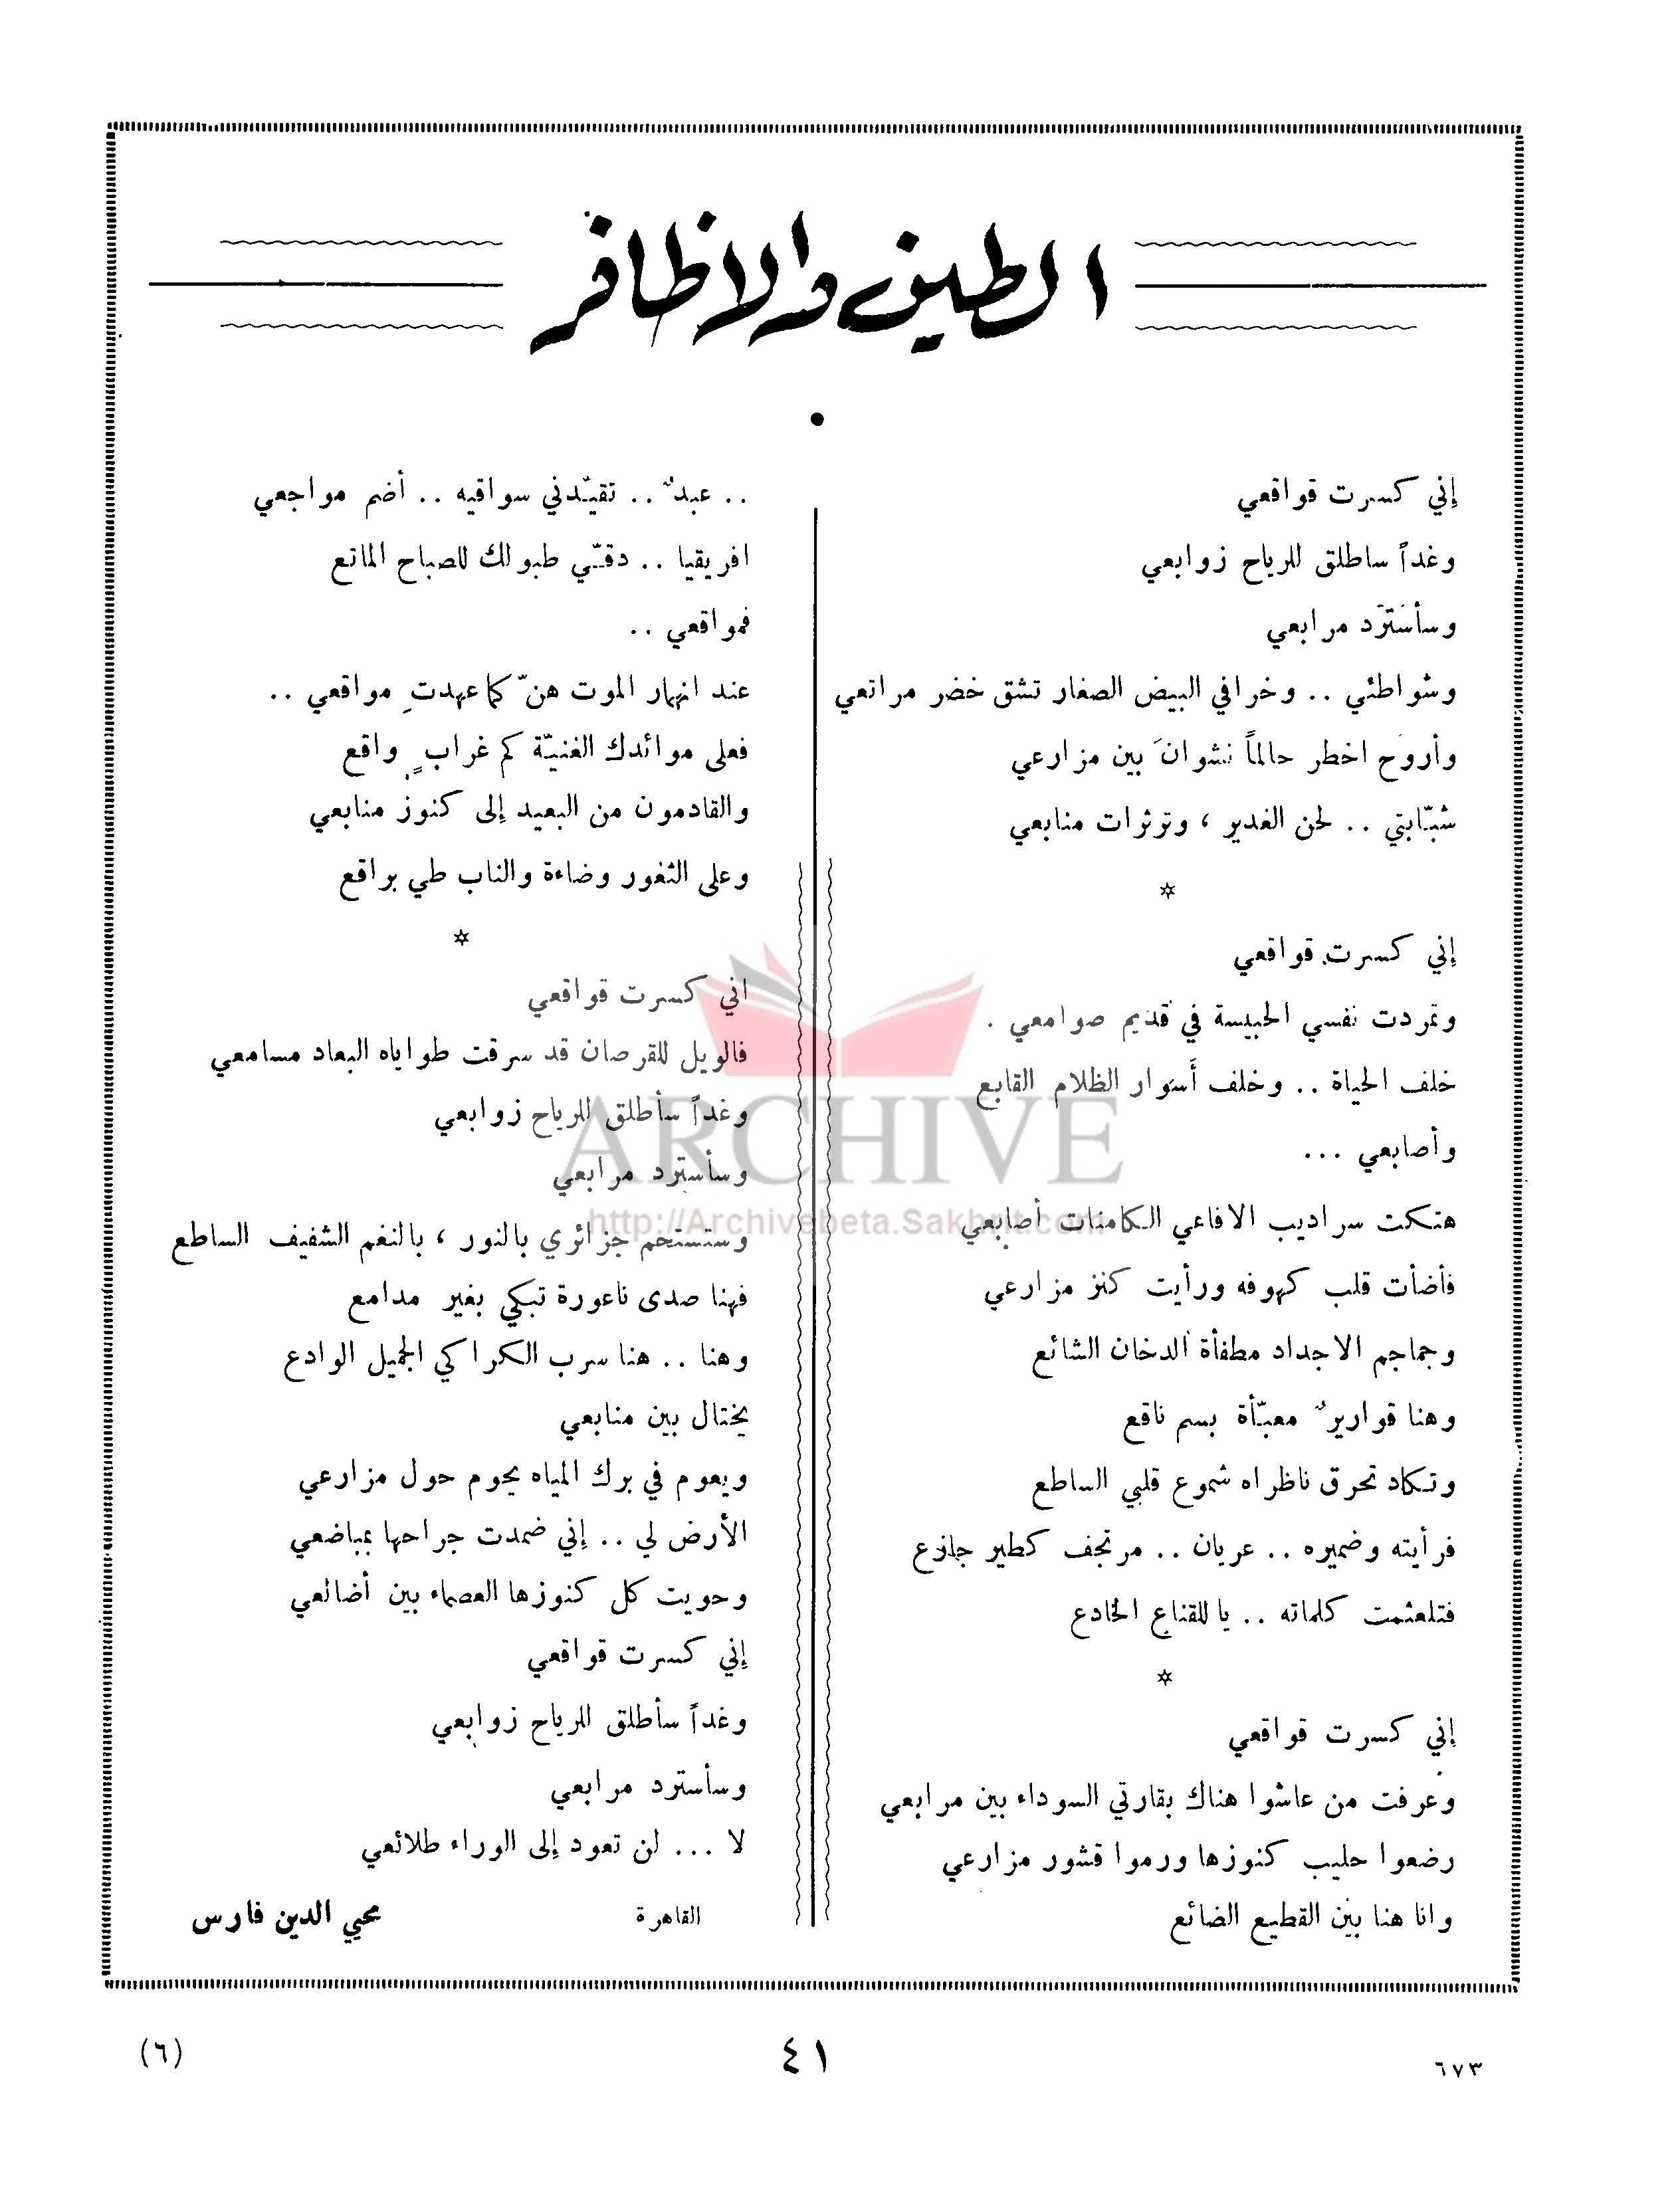 الطيف والاظافر
إني كسرت قواقعي
وغداً ساطلق للرياح زوابعي
وسأستَرَد مرابعي
وشواطئي .. وخرافي البيض الصغار تشق خضر مراتعي
وأروح اخطر حالماً نشوانَ بين مزارعي
شبّابتي .. لحن الغدير ، وثرثرات منابعي
✡
إني كسرت قواقعي
وتمردت نفسي الحبيسة في قديم صوامعي .
خلف الحياة .. وخلف أسوار الظلام القابع
وأصابعي ...
هتكت سراديب الافاعي الكامنات أصابعي
فأضأت قلب كهوفه ورأيت كنز مزارعي
وجماجم الاجداد مطفأة الدخان الشائع
وهنا قواريرٌ معبّأة بسم ناقع
وتكاد تحرق ناظراه شموع قلبي الساطع
فرأيته وضميره .. عريان .. مرتجف كطير جازع
فتلعثمت كلماته .. يا للقناع الخادع
✡
إني كسرت قواقعي
وعرفت من عاشوا هناك بقارتي السوداء بين مرابعي
رضعوا حليب كنوزها ورموا قشور مزارعي
وانا هنا بين القطيع الضائع
.. عبدٌ .. تقيّدني سواقيه .. أضم مواجعي
افريقيا .. دقّي طبولك للصباح الماتع
فمواقعي ..
عند انهار الموت هنّ كما عهدتِ مواقعي ..
فعلى موائدك الغنيّة كم غرابٍ واقع
والقادمون من البعيد إلى كنوز منابعي
وعلى الثغور وضاءة والناب طي براقع
✡
اني كسرت قواقعي
فالويل للقرصان قد سرقت طواياه البعاد مسامعي
وغداً سأطلق للرياح زوابعي
وسأسترد مرابعي
وستستحم جزائري بالنور ، بالنغم الشفيف الساطع
فهنا صدى ناعورة تبكي بغير مدامع
وهنا .. هنا سرب الكراكي الجميل الوادع
يختال بين منابعي
ويعوم في برك المياه يحوم حول مزارعي
الأرض لي .. إني ضمدت جراحها بمباضعي
وحويت كل كنوزها العصماء بين أضالعي
إني كسرت قواقعي
وغداً سأطلق للرياح زوابعي
وسأسترد مرابعي
لا ... لن تعود إلى الوراء طلائعي
القاهرة
محيي الدين فارس
ARCHIVE
http://Archivebeta.Sakhrit.com
٦٧٣
٤١
(٦)